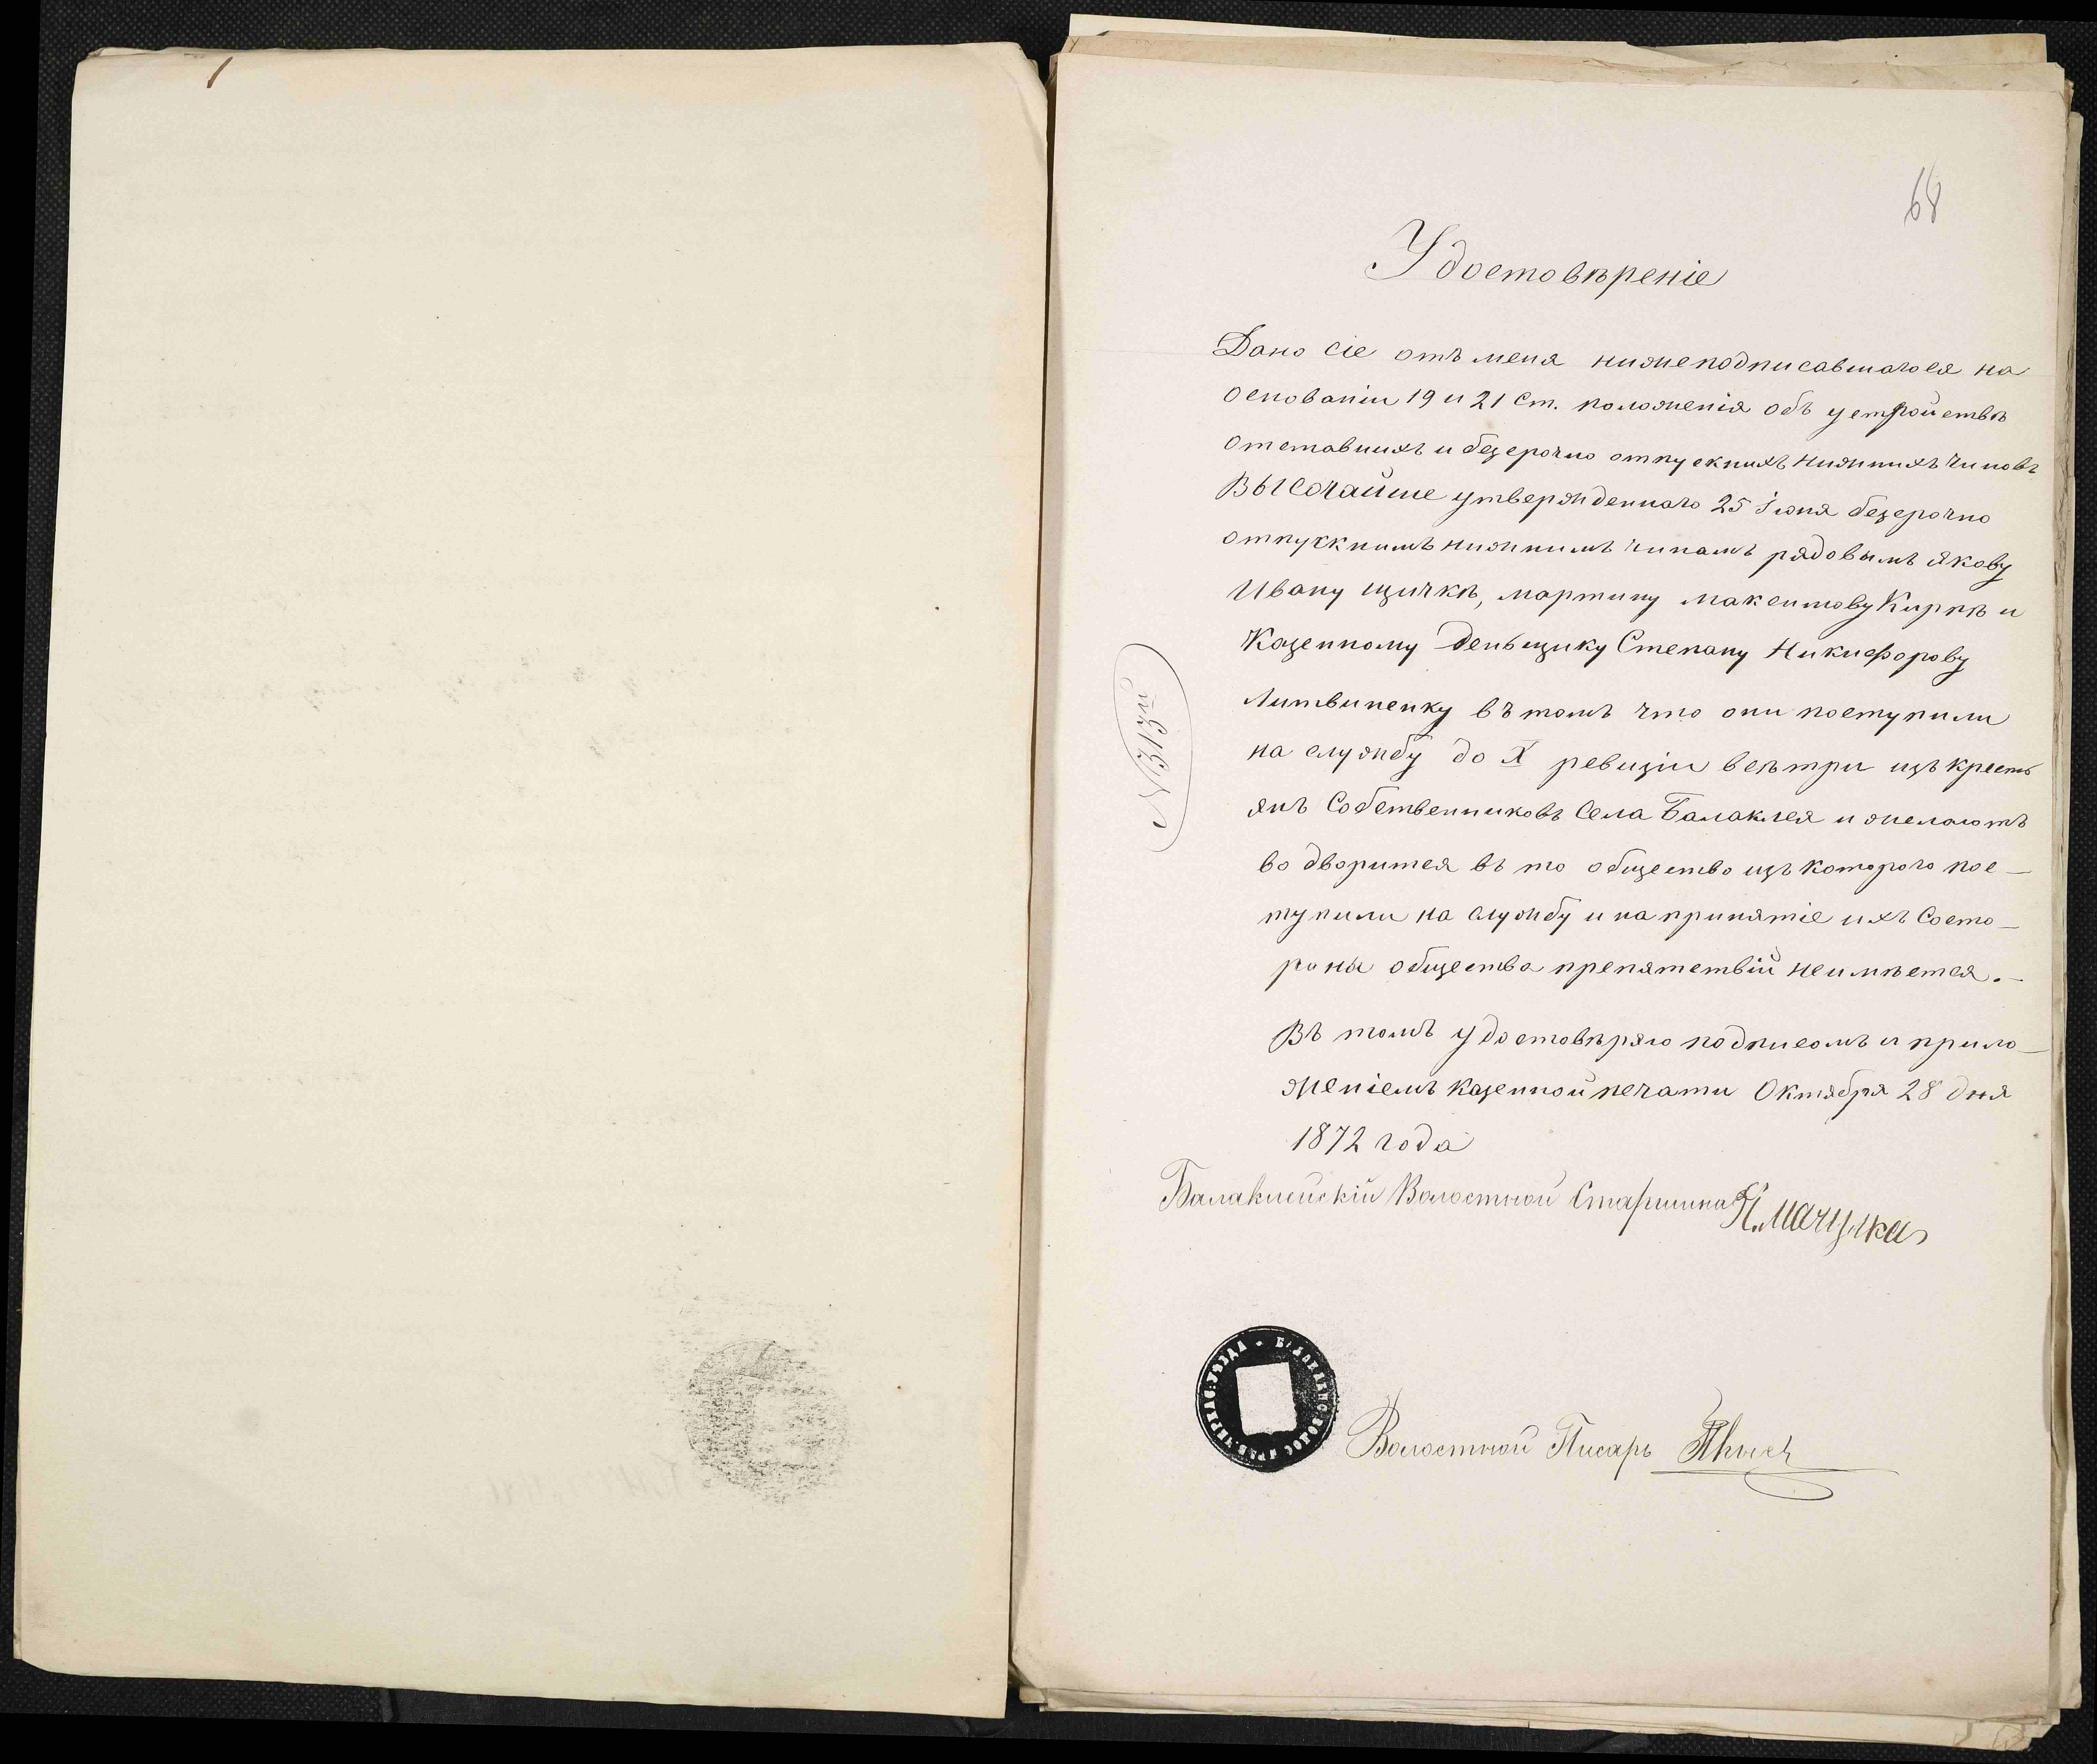 68
Удостовѣреніе
Дано сіе отъ меня нижеподписавшагося на
основаніи 19 и 21 ст. положенія объ устройствѣ
отставныхъ и безсрочно отпускныхъ нижнихъ чиновъ
Высочайше утвержденнаго 25 Іюня безсрочно
отпускнымъ нижнимъ чинамъ рядовымъ Якову
Ивану Щичкѣ, мартину максимову Кирпѣ и
Казенному Деньщику Степану Никифорову
Литвиненку въ томъ что они поступили
на службу до X ревизіи всѣ три изъ кресть
янъ Собственниковъ Села Балаклея и желаютъ
во дворится въ то общество изъ котораго пос-
тупили на службу и на принятіе ихъ Состо-
роны общества препятствій неимѣется.-
Въ томъ удостовѣряю подписомъ и прило-
женіемъ казенной печати Октября 28 дня
1872 года
Балаклейскій Волостной Старшина
Волостной Писарь